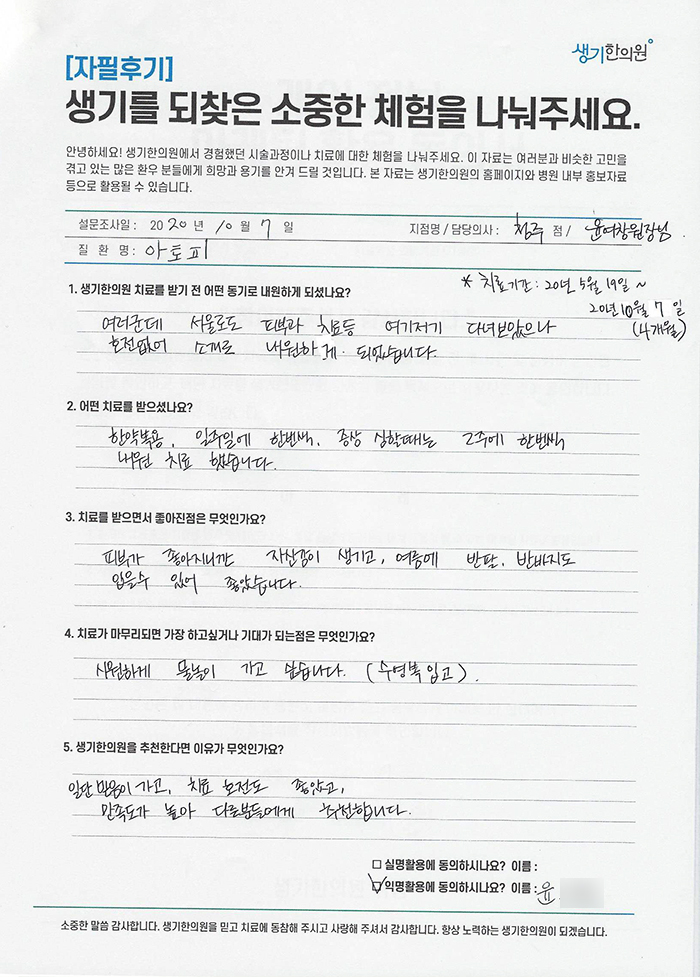 생기한의원
[자필후기]
생기를 되찾은 소중한 체험을 나눠주세요.
안녕하세요! 생기한의원에서 경험했던 시술과정이나 치료에 대한 체험을 나눠주세요. 이 자료는 여러분과 비슷한 고민을
겪고 있는 많은 환우 분들에게 희망과 용기를 안겨 드릴 것입니다. 본 자료는 생기한의원의 홈페이지와 병원 내부 홍보자료
등으로 활용될 수 있습니다.
설문조사일 : 2020년 10월 7일 지점명 / 담당의사 : 청주 점 / 윤여창원장님
질 환 명 : 아토피
* 치료기간 : 20년 5월 19일 ~
20년 10월 7일
(4개월)
1. 생기한의원 치료를 받기 전 어떤 동기로 내원하게 되셨나요?
여러군데 서울로도 피부과 치료등 여기저기 다녀보았으나
호전없어 소개로 내원하게 되었습니다.
2. 어떤 치료를 받으셨나요?
한약복용, 일주일에 한번씩, 증상 심할때는 2주에 한번씩
내원 치료 했습니다.
3. 치료를 받으면서 좋아진점은 무엇인가요?
피부가 좋아지니깐 자신감이 생기고, 여름에 반팔, 반바지도
입을수 있어 좋았습니다.
4. 치료가 마무리되면 가장 하고싶거나 기대가 되는점은 무엇인가요?
시원하게 물놀이 가고 싶습니다. (수영복입고).
5. 생기한의원을 추천한다면 이유가 무엇인가요?
일단 믿음이 가고, 치료 호전도 좋았고,
만족도가 높아 다른분들에게 추천합니다.
실명활용에 동의하시나요? 이름 :
익명활용에 동의하시나요? 이름 : 윤
소중한 말씀 감사합니다. 생기한의원을 믿고 치료에 동참해 주시고 사랑해 주셔서 감사합니다. 항상 노력하는 생기한의원이 되겠습니다.